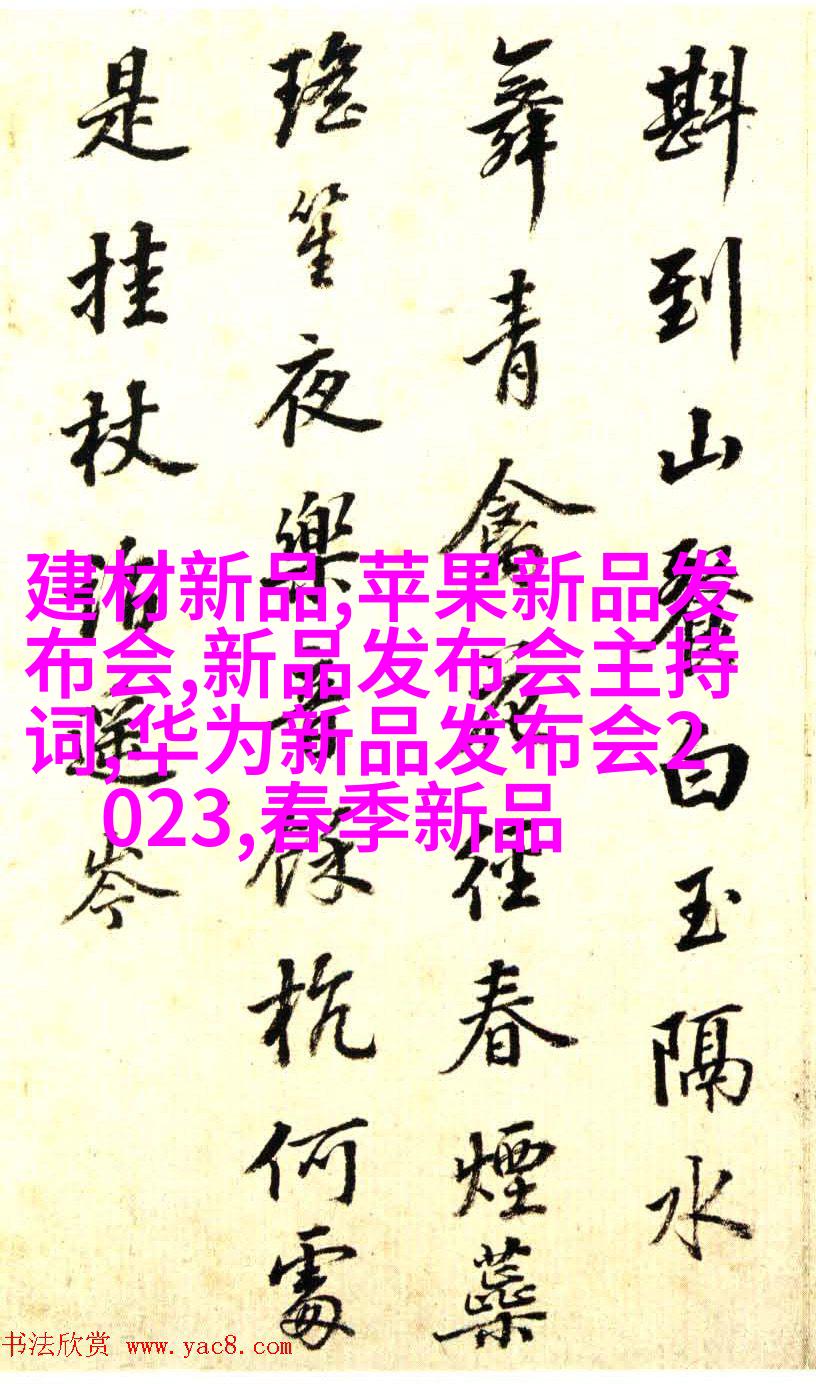 斟到山白玉隔水
舞青禽苑徑春煙蘂
瑤笙夜樂音餘杭何處
是挂杖遥岑
建材新品,苹果新品发
布会,新品发布会主持
词,华为新品发布会2
023,春季新品
书法欣赏 www.yac8.com